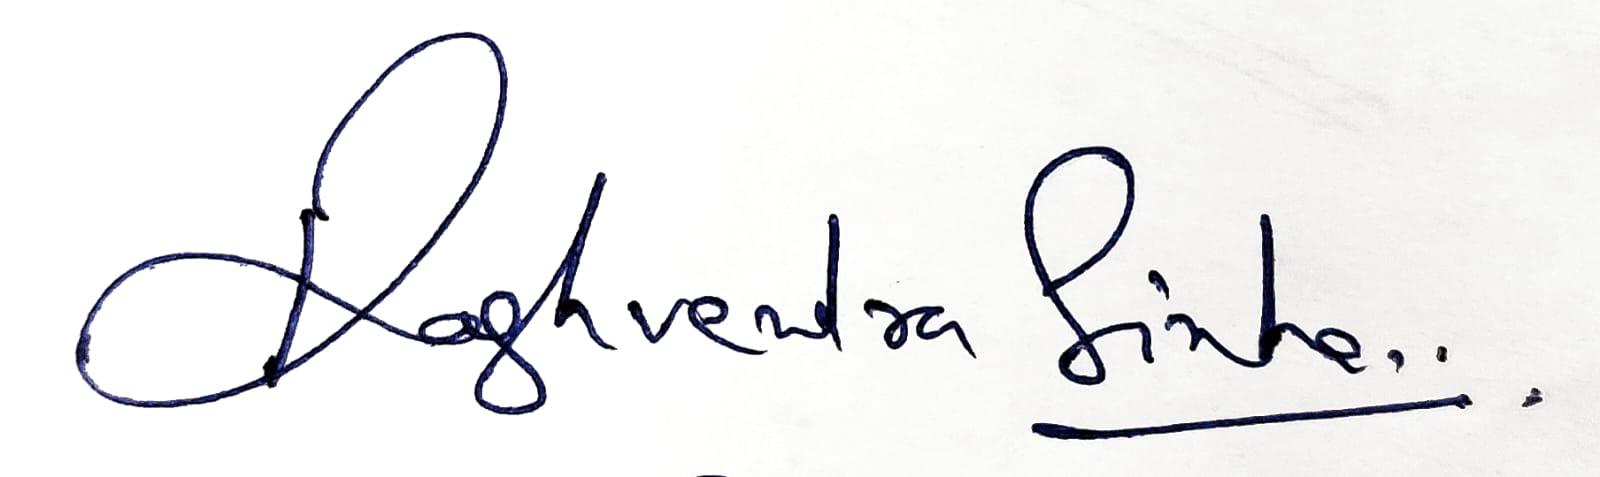 Raghvendra Sinha..